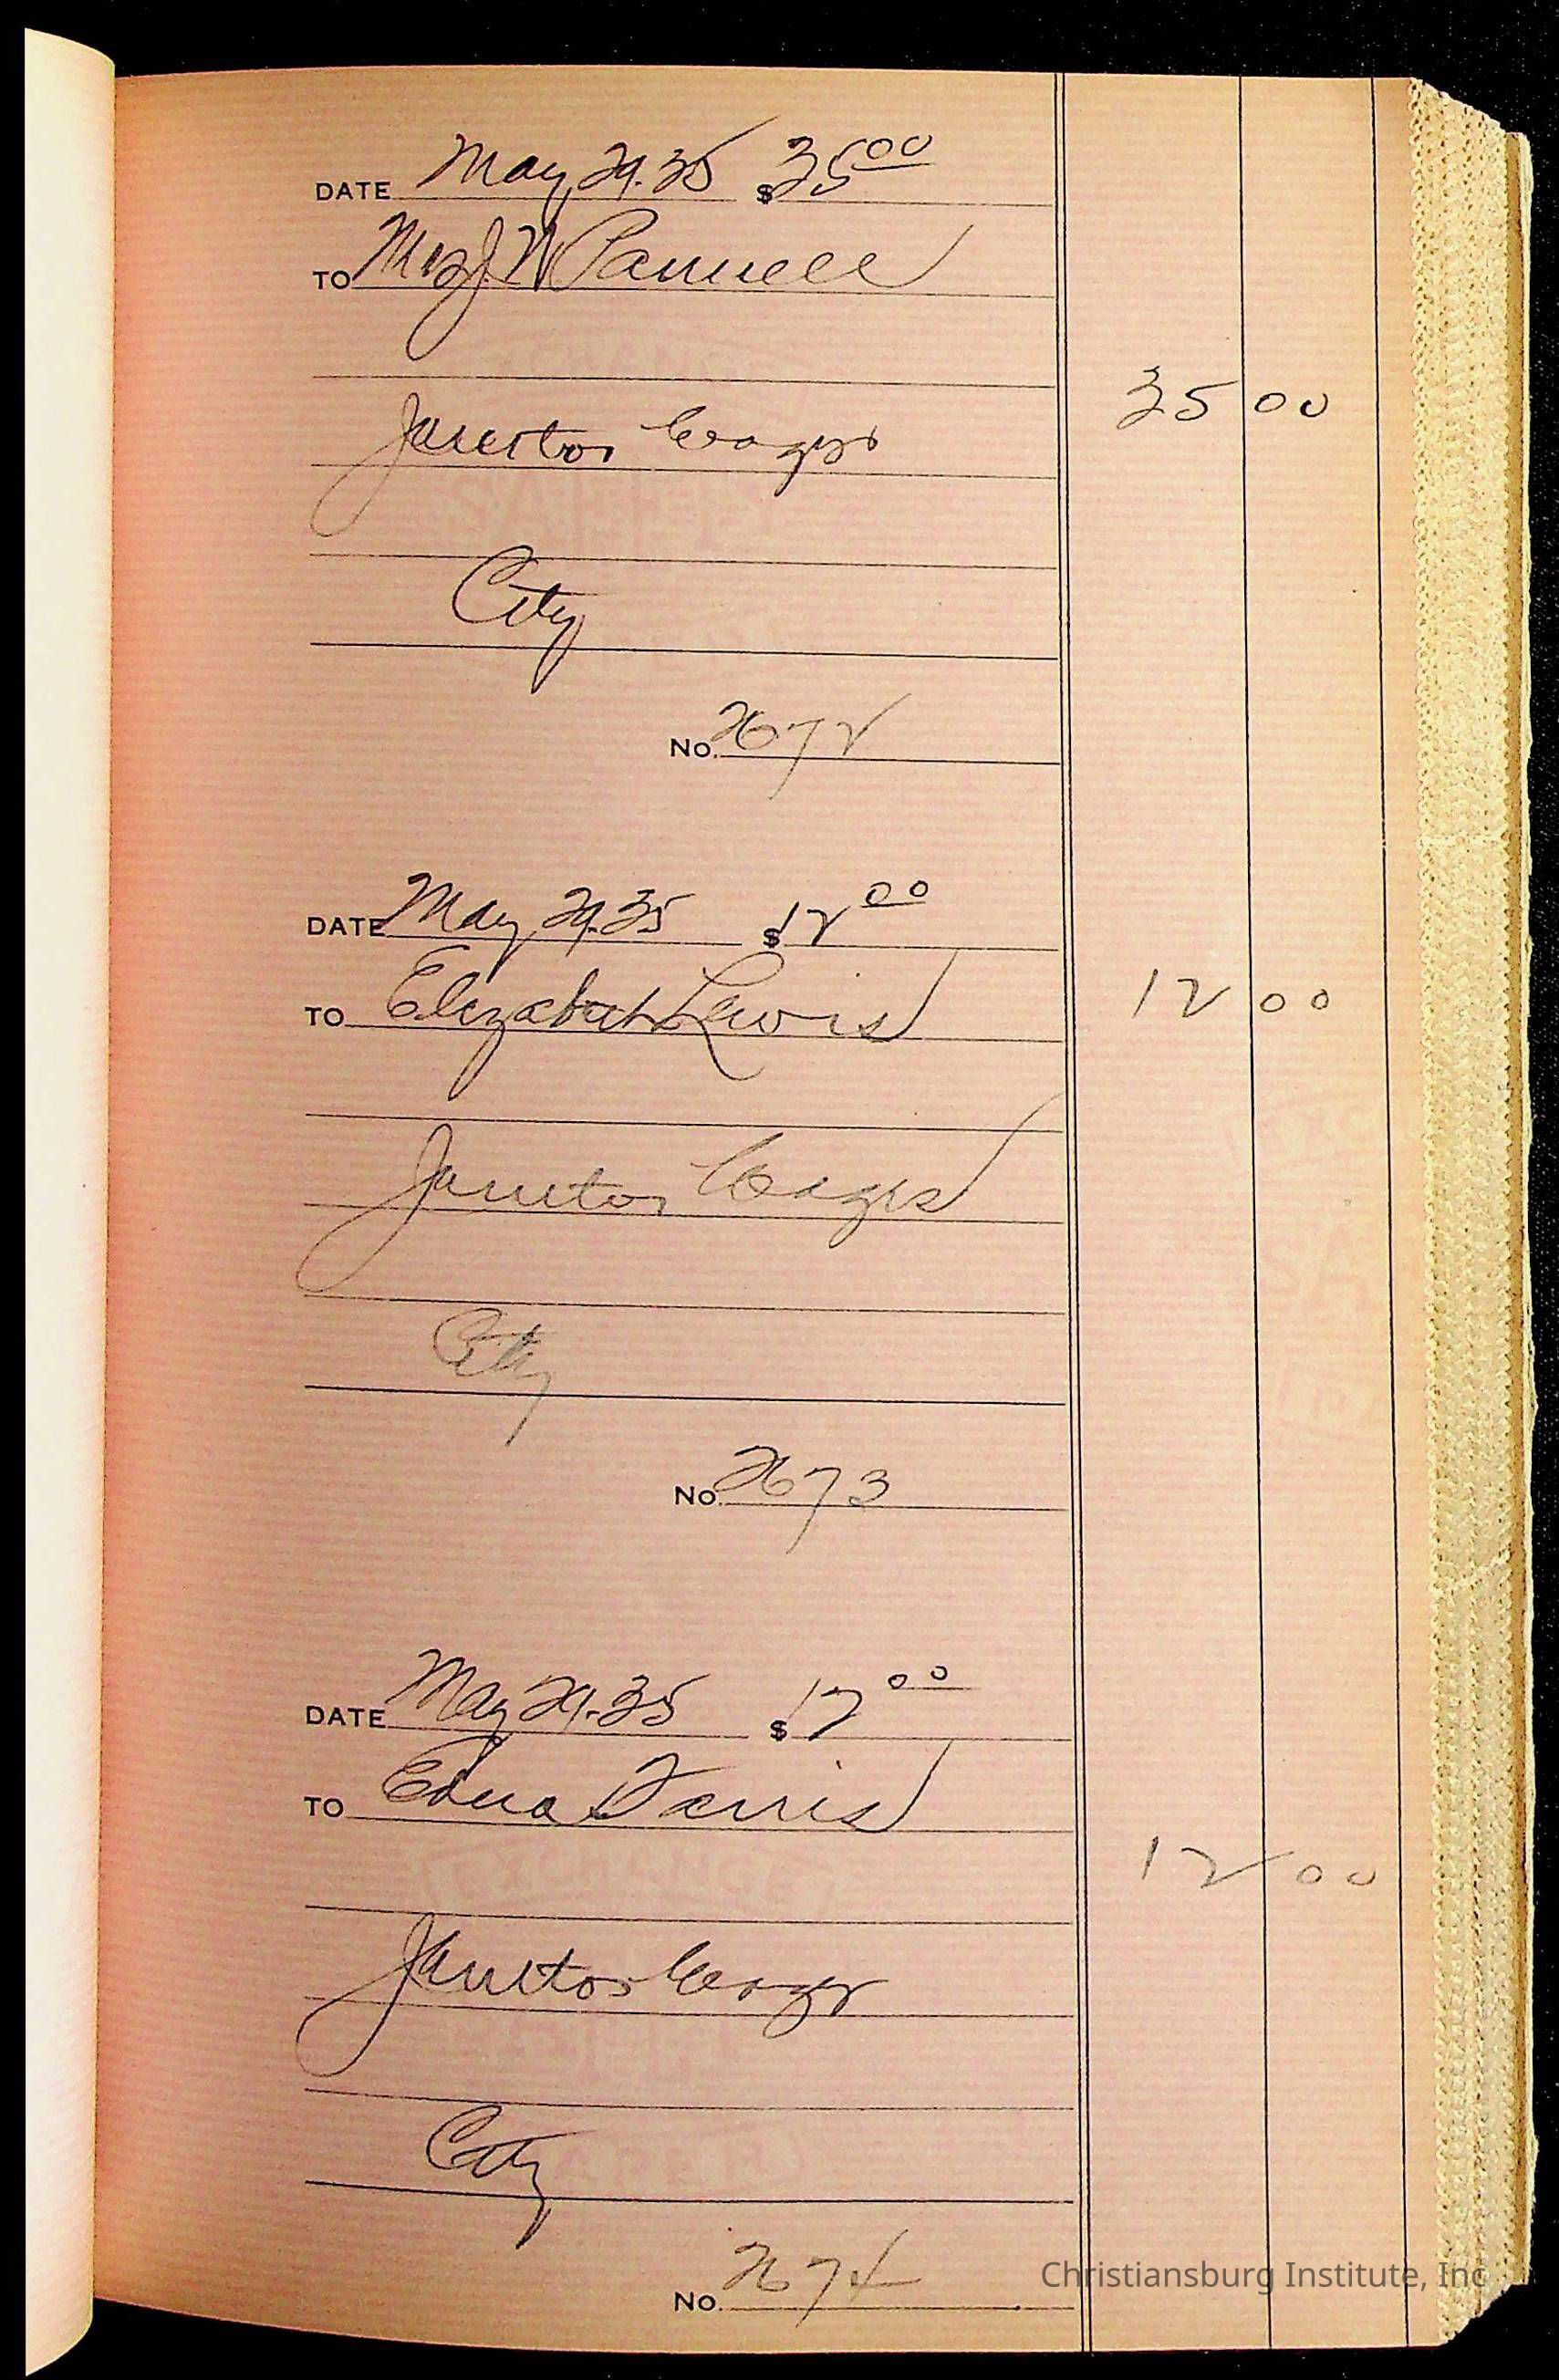 DATE May 29.35 $35 00
TO Mrs J. W Pannell
35 00
Janitor Wages
City
No. 2672
DATE May 29.35 $12 00
TO Elizabeth Lewis
12 00
Janitor Wages
City
No. 2673
DATE May 29.35 $12 00
TO Edna Harris
12 00
Janitor Wages
City
No. 2674
Christiansburg Institute, Inc